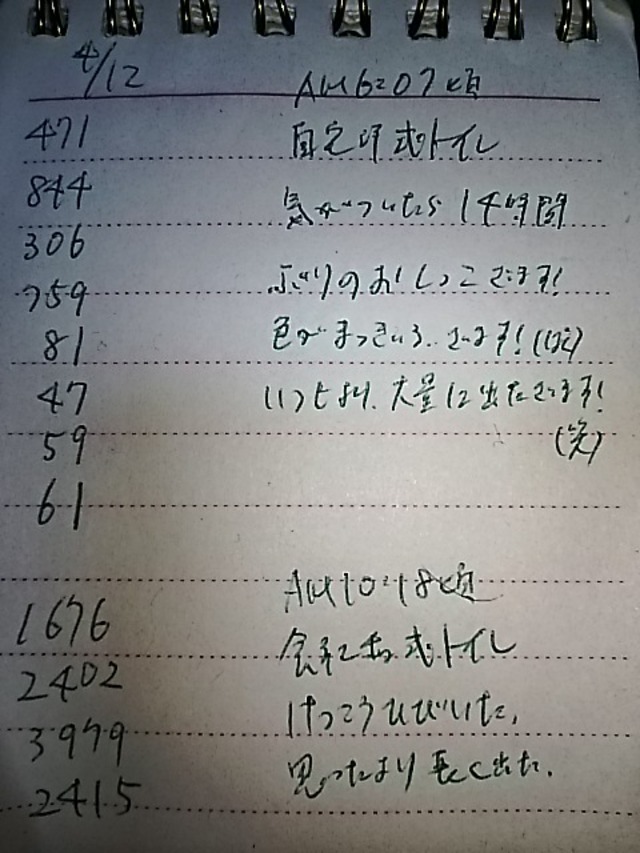 4/12
AM6:07頃
471
自宅洋式トイレ
844
気がついたら14時間
306
759
ぶりのおしっこでます!
81
色がまっきいろ..でます!(笑)
47
いつもより、大量に出たでます!
59
(笑)
61
AM10:18頃
1676
和式トイレ
2402
けっこうひびいた、
3979
思ったより長く出た。
2415